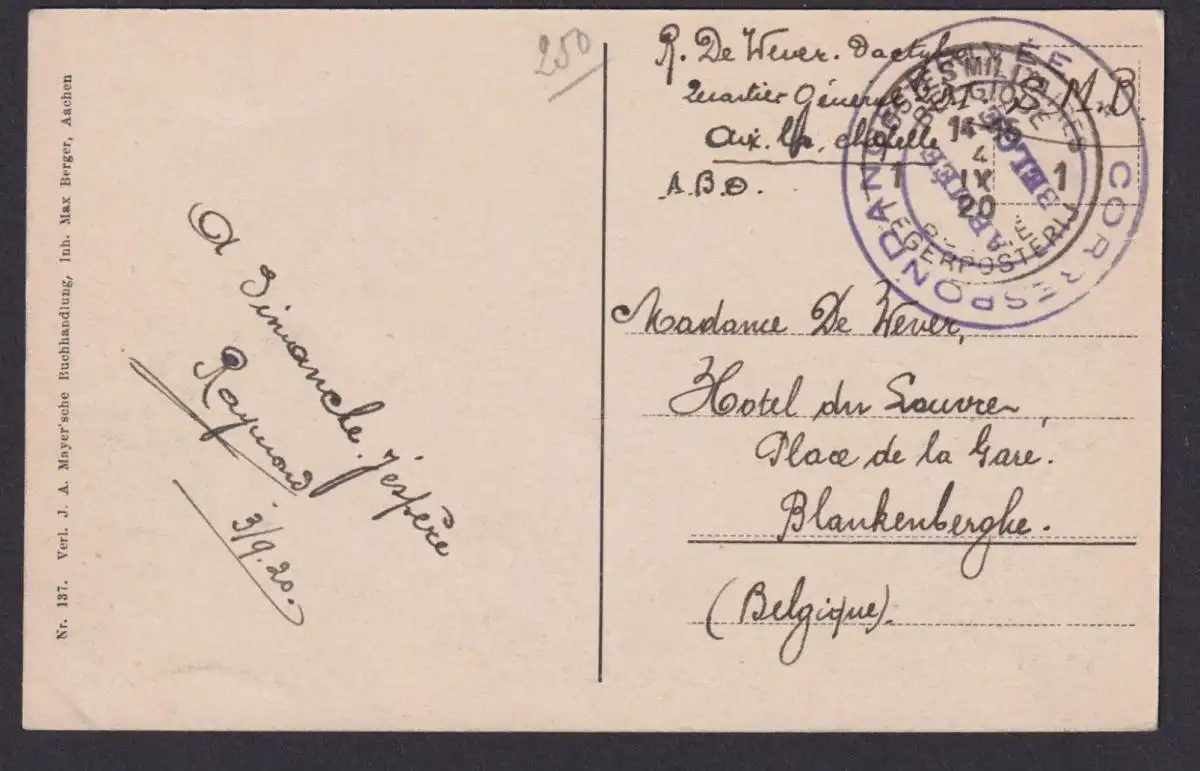 250
R. De Wever. Dactylo
Quartier Général
Aix. la. chapelle
A.B.O.
S.M.B.
CORRESPONDANCE PRIVÉE
ARMÉE BELGE
POSTES MILITAIRES
BELGIQUE
14-15
4
IX
20
1 1
LEGERPOSTERIJ
Madame De Wever,
Hotel du Louvre,
Place de la Gare.
Blankenberghe.
(Belgique).
A Dimanche. j'espère
Raymond
3/9.20.
Nr. 137. Verl. J. A. Mayer'sche Buchhandlung, Inh. Max Berger, Aachen